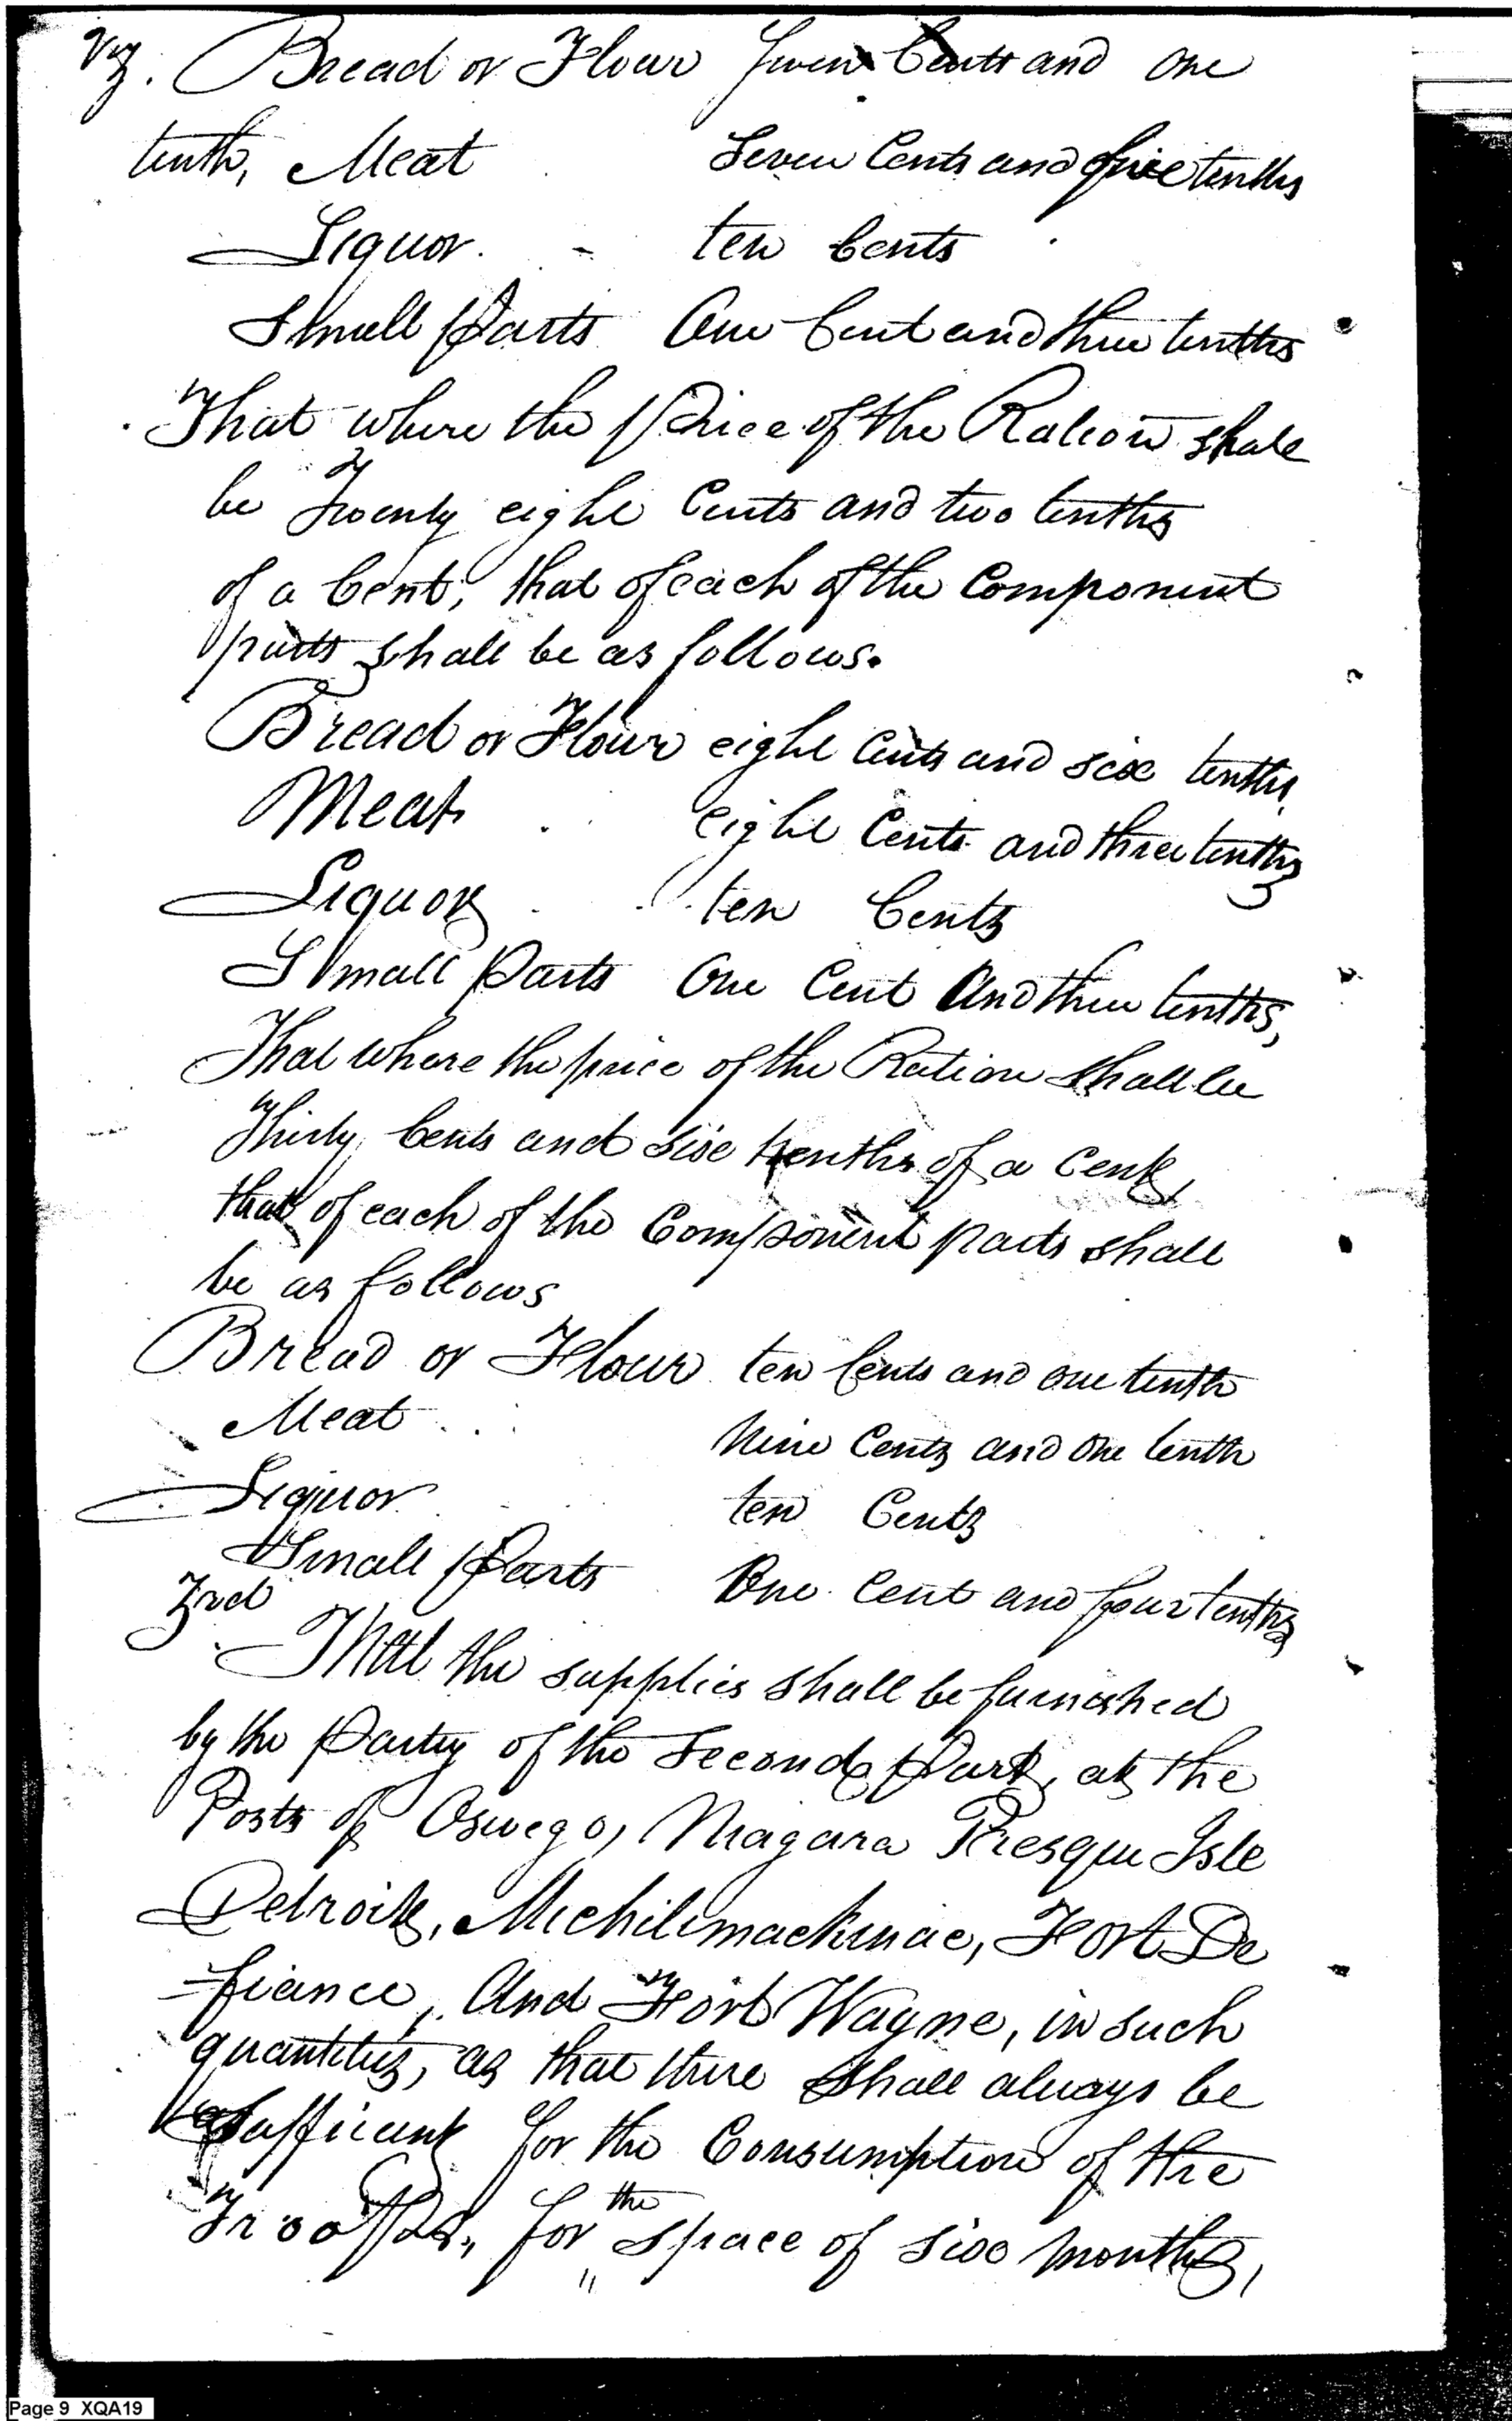 Viz. Bread or Flour Seven Cents and one
tenth, Meat Seven Cents and five tenths
Liquor. - ten Cents
Small Parts One Cent and three tenths
That where the Price of the Ration shall
be Twenty eight Cents and two tenths
of a Cent, that of each of the Component
parts shall be as follows.
Bread or Flour eight Cents and six tenths
Meat eight Cents and three tenths
Liquor ten Cents
Small Parts One Cent And three tenths,
That where the price of the Ration shall be
Thirty Cents and six tenths of a Cent,
that of each of the Component parts shall
be as follows
Bread or Flour ten Cents and one tenth
Meat Nine Cents and one tenth
Liquor ten Cents
Small Parts One Cent and four tenths
3rd
That the supplies shall be furnished
by the Party of the Second Part, at the
Posts of Oswego, Niagara Presque Isle
Detroit, Michilimackinac, Fort De
=fiance, And Fort Wayne, in such
quantitys, as that there shall always be
Sufficient for the Consumption of the
Troops, for the space of six months,
Page 9 XQA19